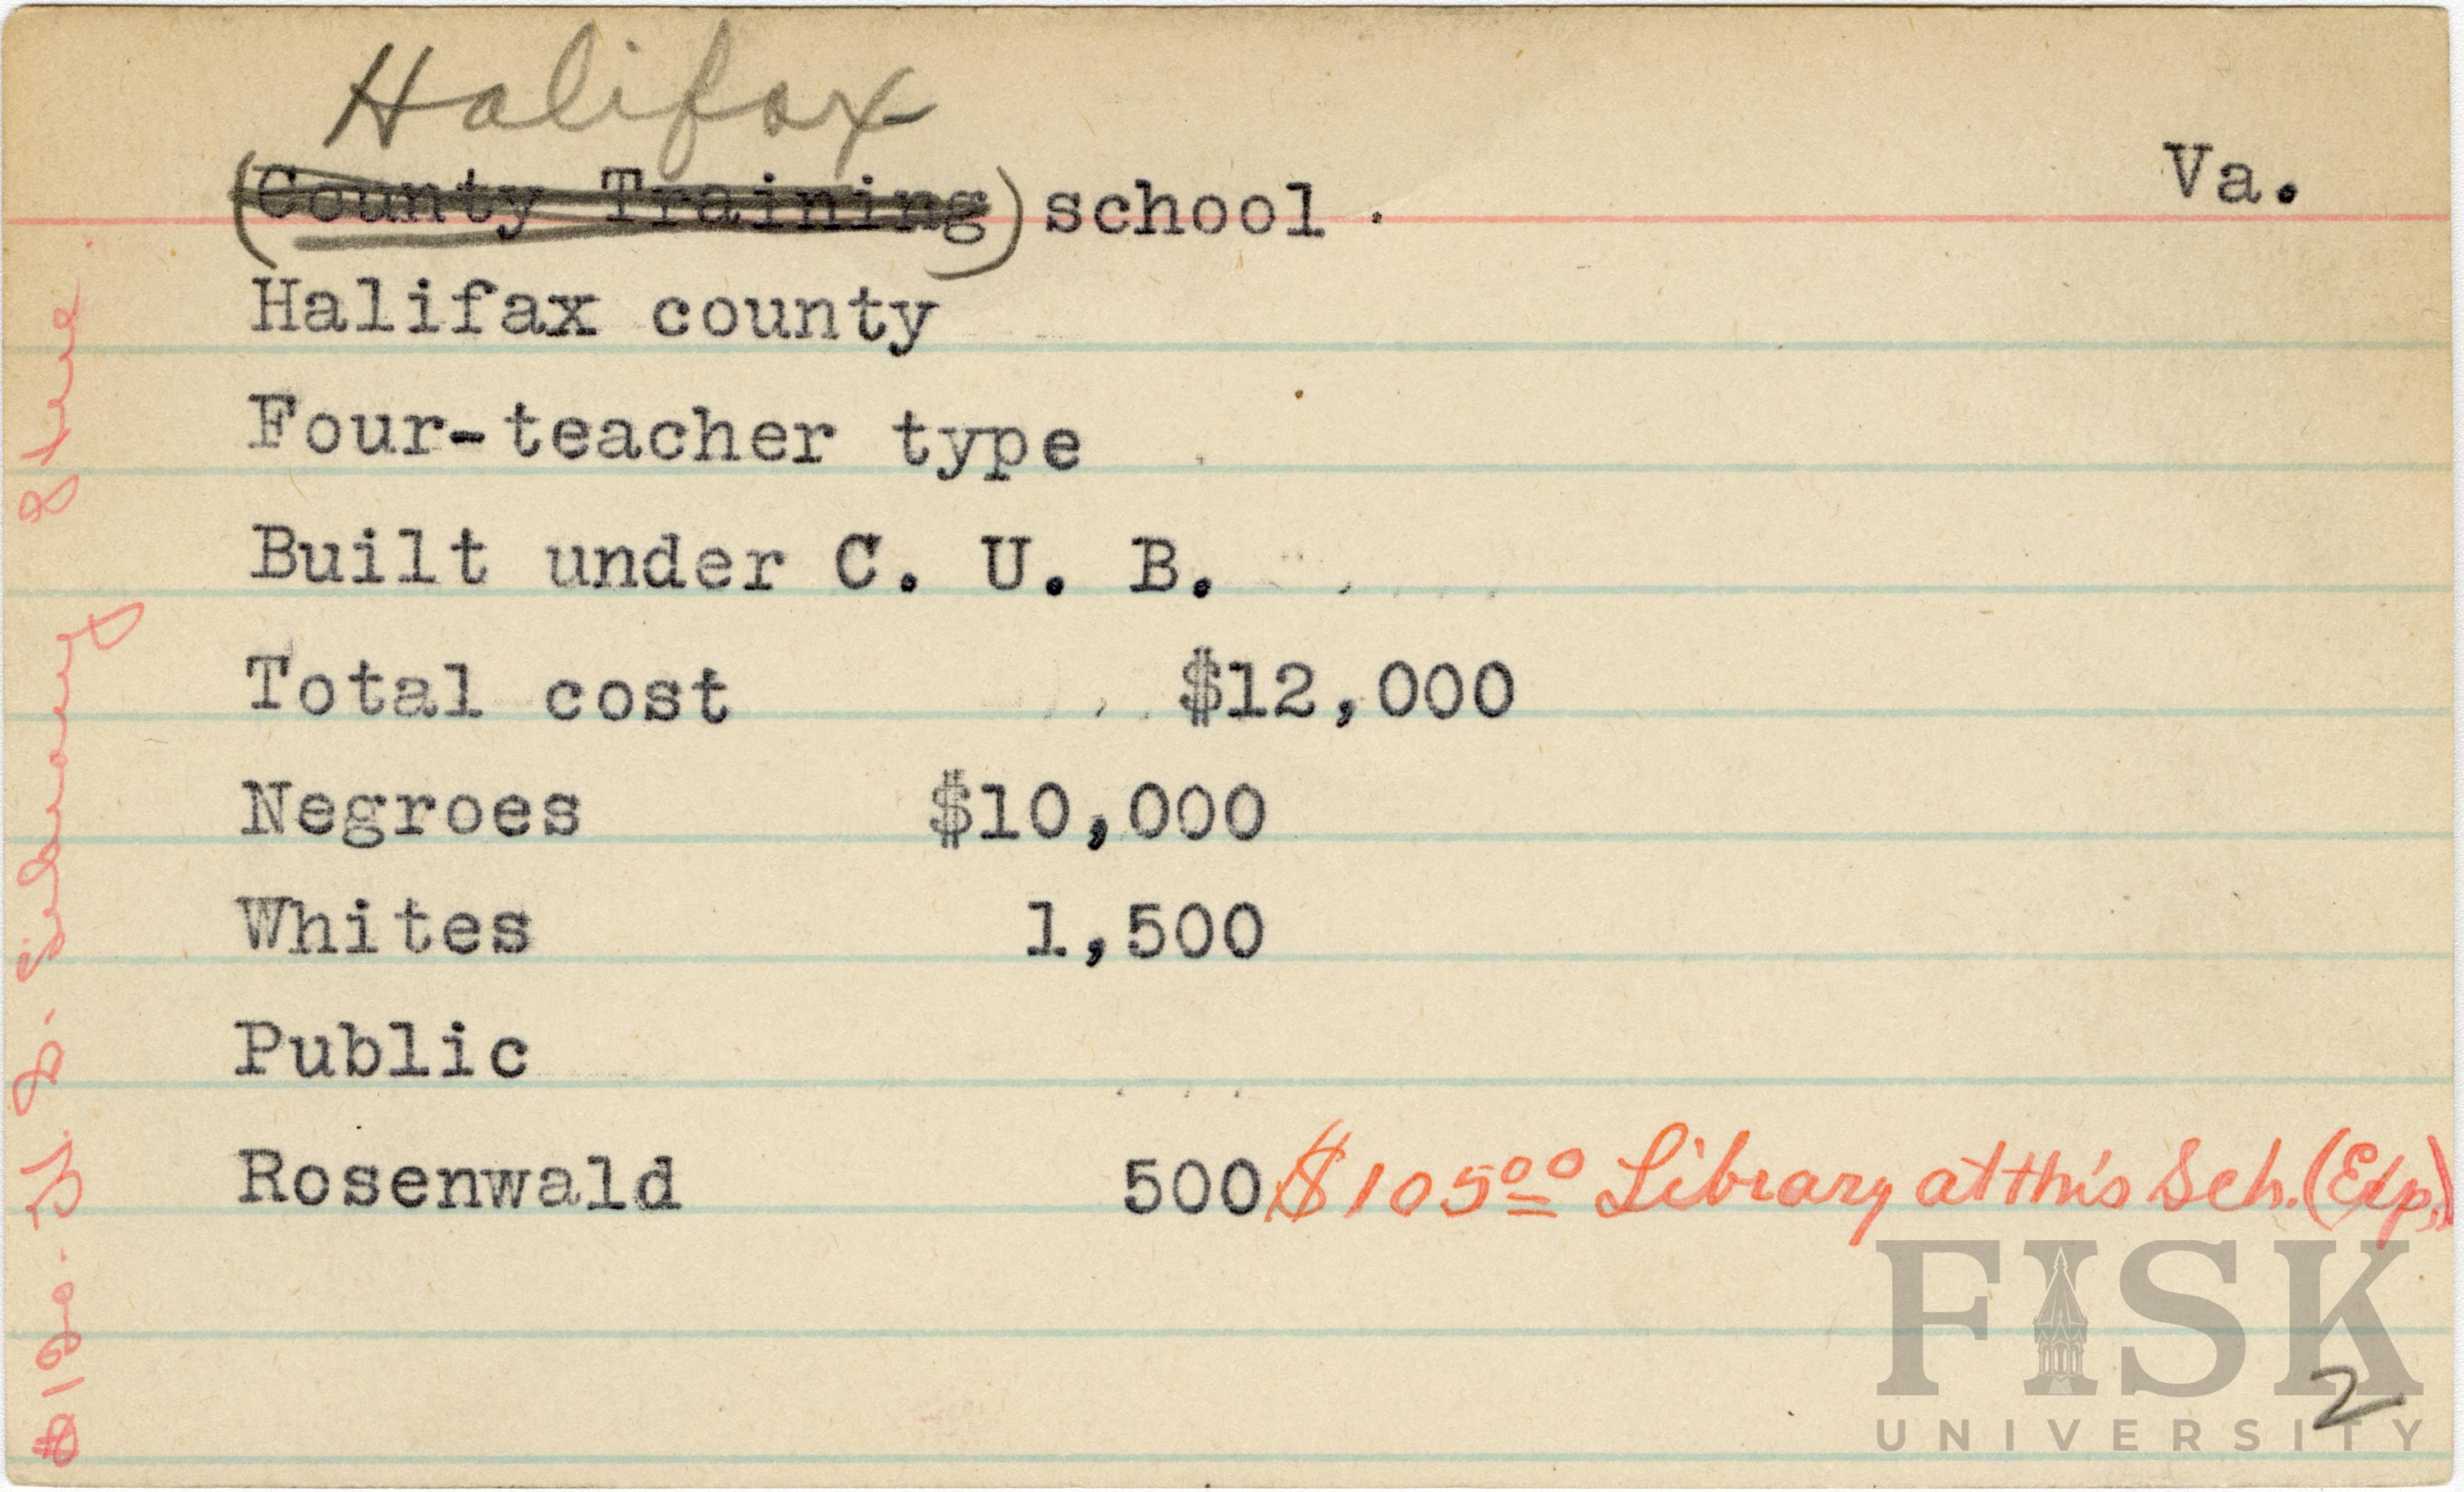 Halifax
(County Training) school .
Va.
Halifax county
Four-teacher type
Built under C. U. B.
Total cost $12,000
Negroes $10,000
Whites 1,500
Public
Rosenwald 500 $105.00 Library at this Sch. (Elp.)
$120. H. S. Library
FISK
UNIVERSITY
2